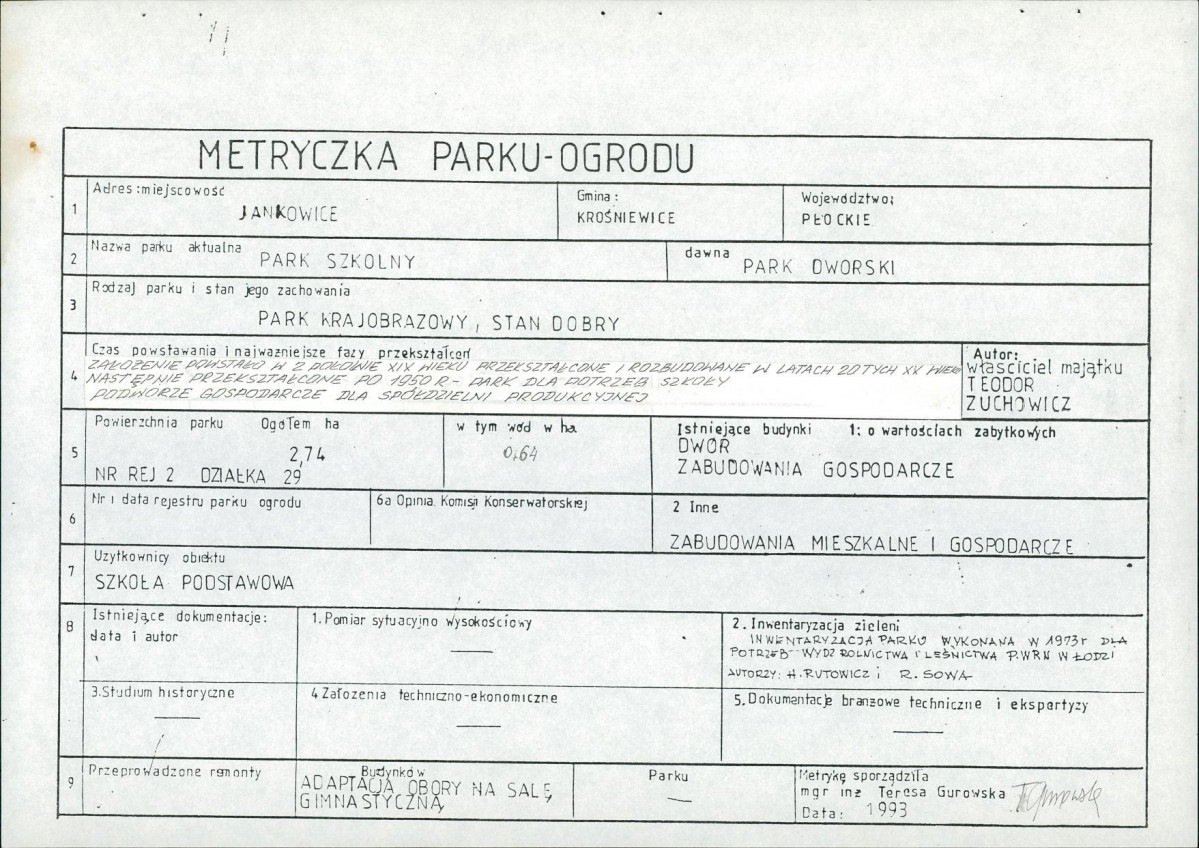 METRYCZKA PARKU-OGRODU
1 Adres: miejscowość
JANKOWICE
Gmina:
KROŚNIEWICE
Województwo:
PŁOCKIE
2 Nazwa parku aktualna
PARK SZKOLNY
dawna
PARK DWORSKI
3 Rodzaj parku i stan jego zachowania
PARK KRAJOBRAZOWY, STAN DOBRY
4 Czas powstawania i najważniejsze fazy przekształceń
ZAŁOŻENIE POWSTAŁO W 2 POŁOWIE XIX WIEKU PRZEKSZTAŁCONE I ROZBUDOWANE W LATACH 20TYCH XX WIEKU
NASTĘPNIE PRZEKSZTAŁCONE PO 1950 R - PARK DLA POTRZEB SZKOŁY
PODWÓRZE GOSPODARCZE DLA SPÓŁDZIELNI PRODUKCYJNEJ
Autor:
właściciel majątku
TEODOR
ZUCHOWICZ
5 Powierzchnia parku Ogółem ha
2,74
NR REJ 2 DZIAŁKA 29
w tym wód w ha
0.64
Istniejące budynki 1: o wartościach zabytkowych
DWÓR
ZABUDOWANIA GOSPODARCZE
6 Nr i data rejestru parku ogrodu
6a Opinia Komisji Konserwatorskiej
2 Inne
ZABUDOWANIA MIESZKALNE I GOSPODARCZE
7 Użytkownicy obiektu
SZKOŁA PODSTAWOWA
8 Istniejące dokumentacje:
data i autor
1. Pomiar sytuacyjno wysokościowy
—
2. Inwentaryzacja zieleni
INWENTARYZACJA PARKU WYKONANA W 1973r DLA
POTRZEB WYDZ ROLNICTWA I LEŚNICTWA P.WRN W ŁODZI
AUTORZY: H. RUTOWICZ i R. SOWA
3. Studium historyczne
—
4 Założenia techniczno-ekonomiczne
—
5. Dokumentacje branżowe techniczne i ekspertyzy
—
9 Przeprowadzone remonty
Budynków
ADAPTACJA OBORY NA SALĘ
GIMNASTYCZNĄ
Parku
—
Metrykę sporządziła
mgr inż Teresa Gurowska
Data: 1993